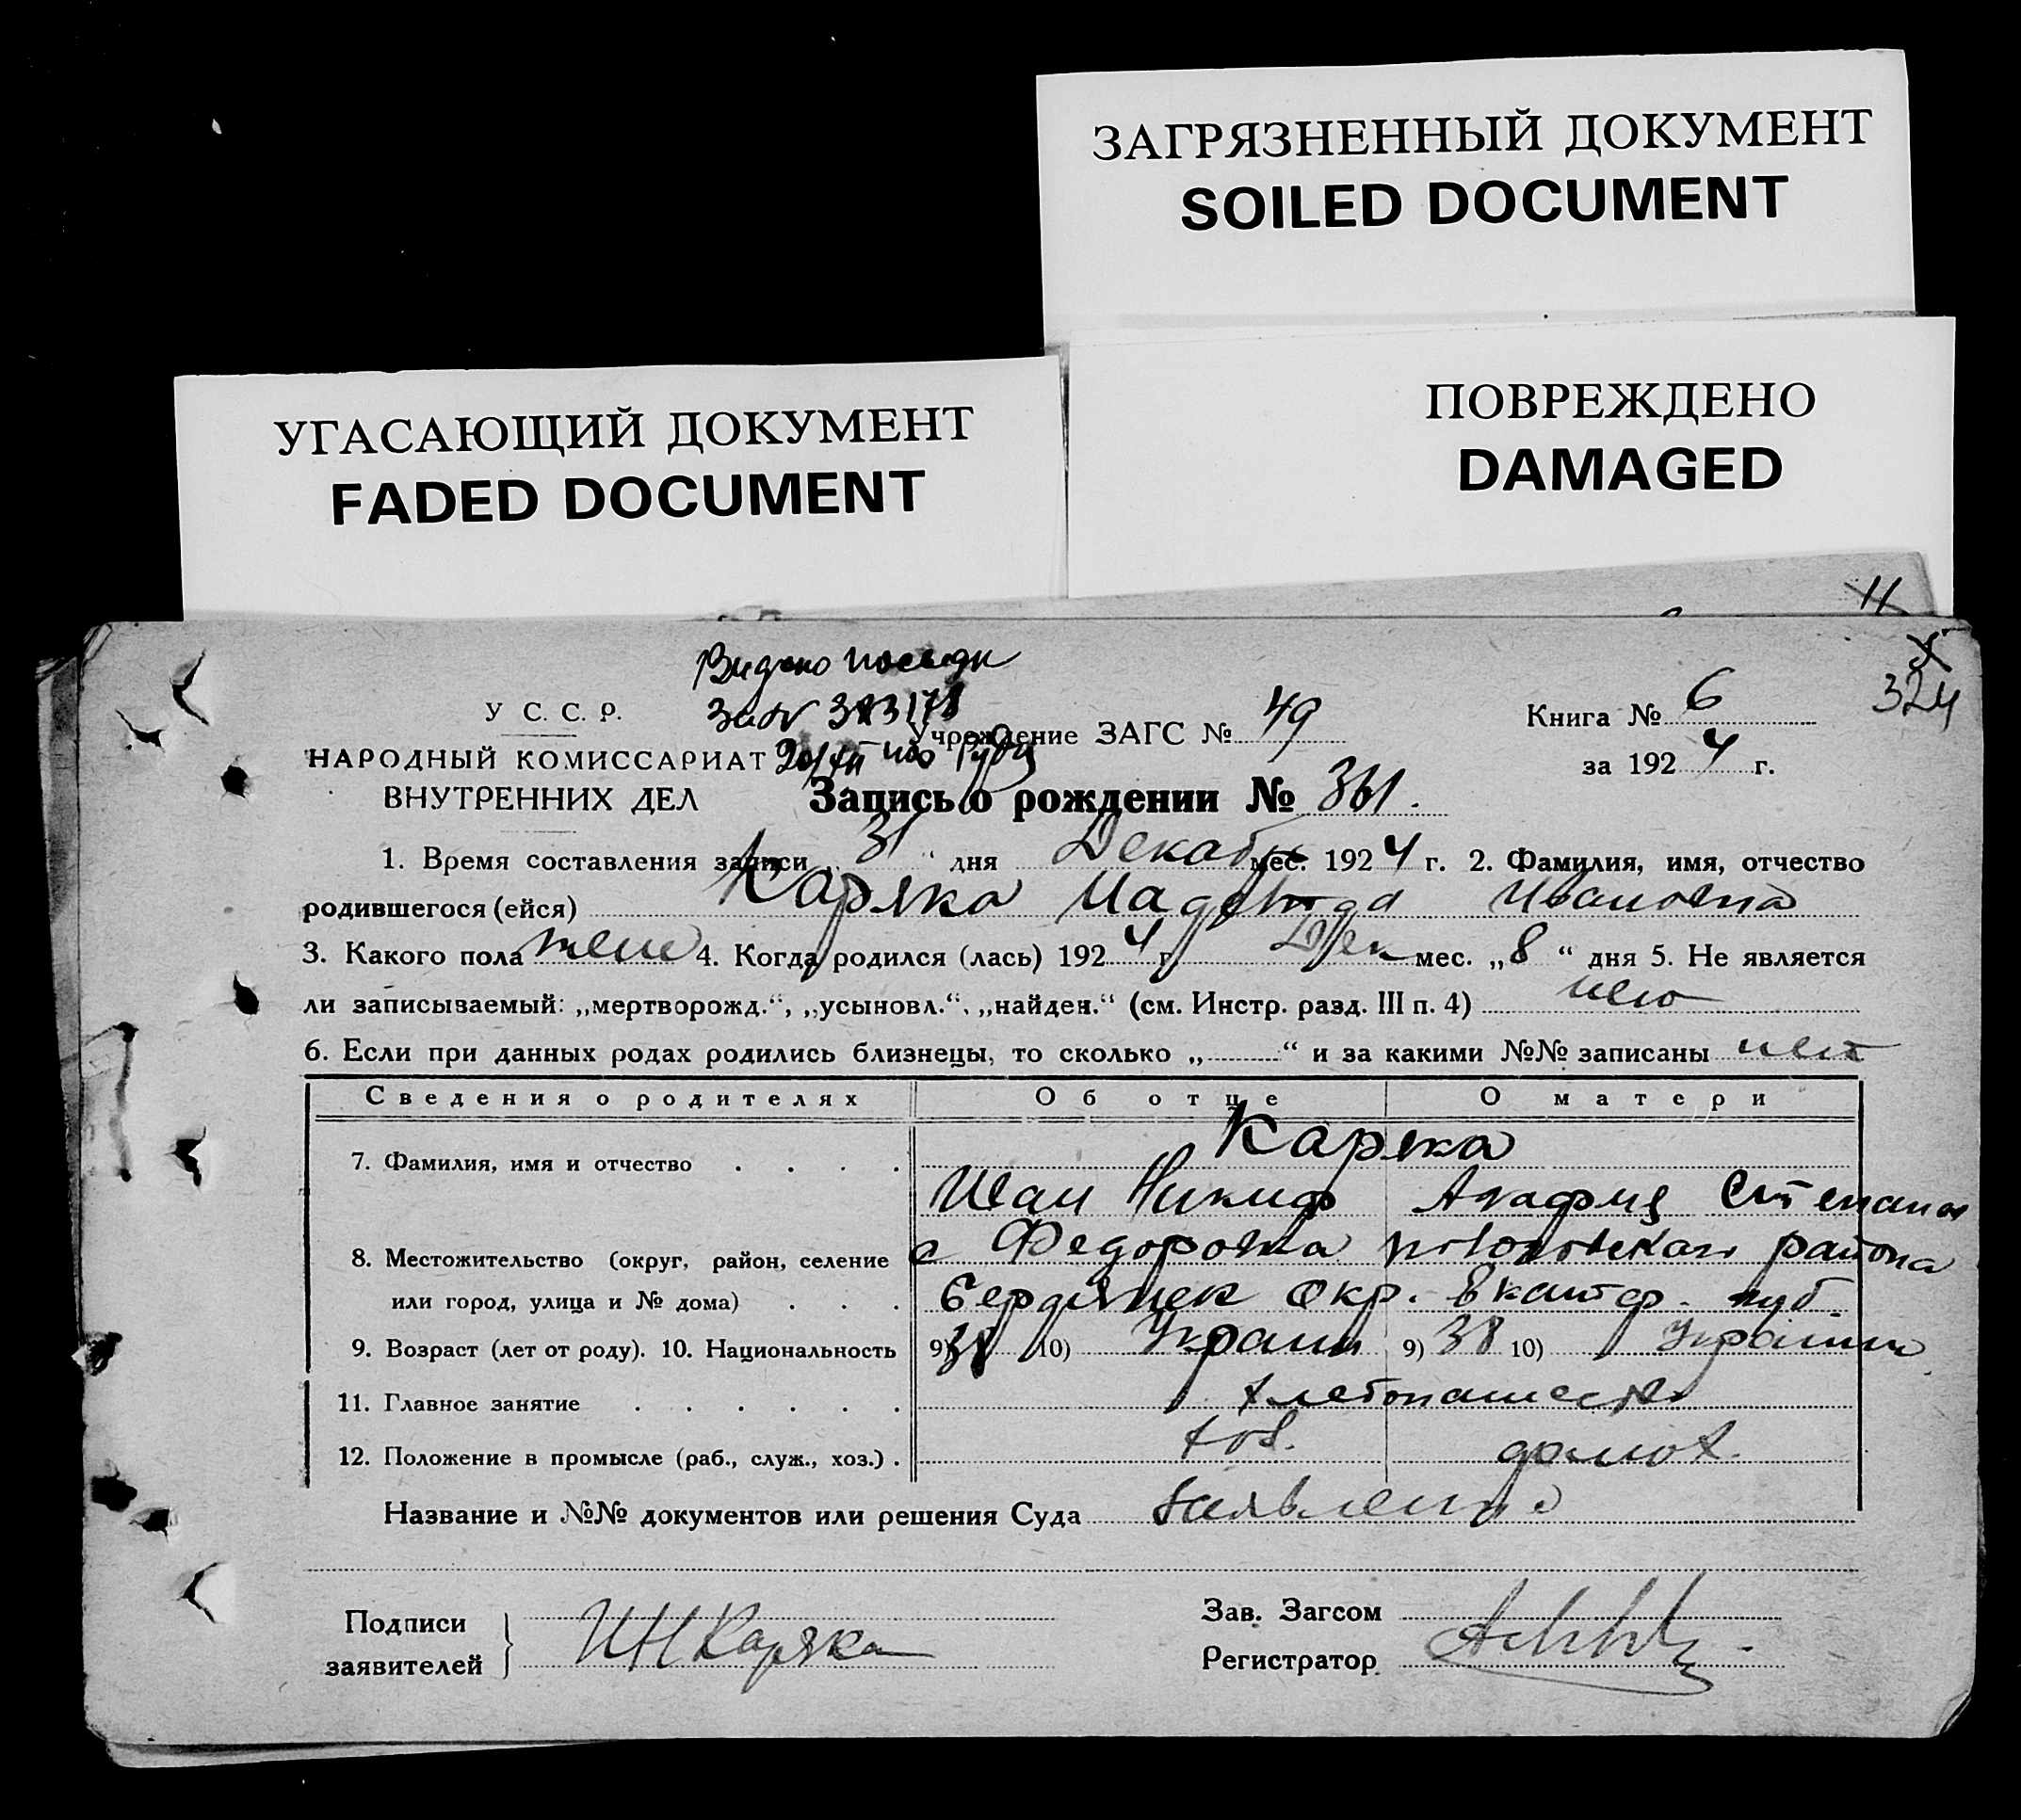 ЗАГРЯЗНЕННЫЙ ДОКУМЕНТ
SOILED DOCUMENT
УГАСАЮЩИЙ ДОКУМЕНТ
FADED DOCUMENT
ПОВРЕЖДЕНО
DAMAGED
11
324
У С. С. Р.
НАРОДНЫЙ КОМИССАРИАТ
ВНУТРЕННИХ ДЕЛ
Учреждение ЗАГС № 49
Книга № 6
за 1924 г.
Запись о рождении № 361.
1. Время составления записи „31“ дня Декабр мес. 1924 г. 2. Фамилия, имя, отчество
родившегося (ейся) Каряка Надежда Ивановна
3. Какого пола жен 4. Когда родился (лась) 1924 г. Дек мес. „8“ дня 5. Не является
ли записываемый: „мертворожд.“, „усыновл.“, „найден.“ (см. Инстр. разд. III п. 4)
6. Если при данных родах родились близнецы, то сколько „ “ и за какими №№ записаны нет
Сведения о родителях Об отце О матери
7. Фамилия, имя и отчество Каряка
Иван Никиф Агафия Степанов
8. Местожительство (округ, район, селение с Федоровка района
или город, улица и № дома) Бердянск Окр. Екатер. губ.
9. Возраст (лет от роду). 10. Национальность 9) 38 10) Украин 9) 38 10) Украин
11. Главное занятие хлебопашество
12. Положение в промысле (раб., служ., хоз.) хоз. домох.
Название и №№ документов или решения Суда заявление
Подписи
заявителей
ИН Каряка
Зав. Загсом
Регистратор